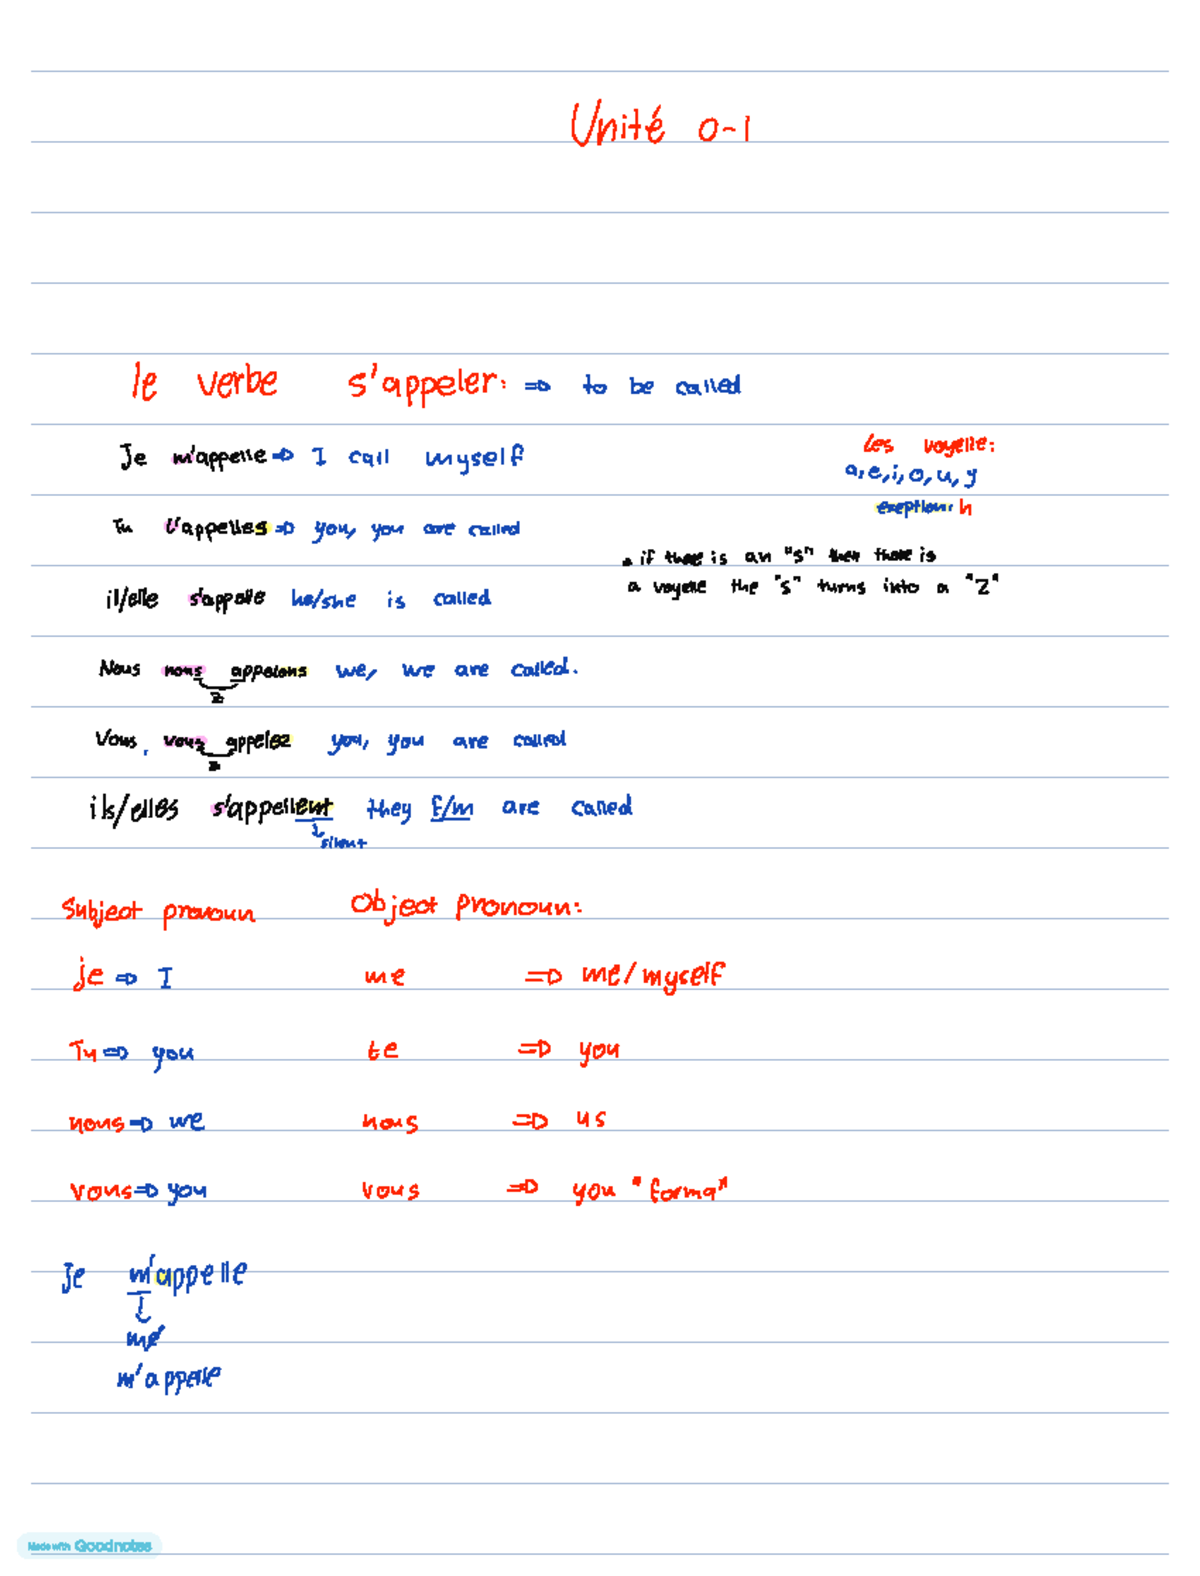 Unité 0-1
le verbe s'appeler: ⇒ to be called
Je m'appelle ⇒ I call myself
Les voyelle:
a, e, i, o, u, y
exeption: h
Tu t'appelles ⇒ you, you are called
• if there is an "s" then there is
a voyelle the "s" turns into a "Z"
il/elle s'appelle he/she is called
Nous nous appelons we, we are called.
z
Vous, vous appelez you, you are called
z
ils/elles s'appellent they f/m are called
silent
Subject pronoun Object pronoun:
je ⇒ I me ⇒ me/myself
Tu ⇒ you te ⇒ you
nous ⇒ we nous ⇒ us
vous ⇒ you vous ⇒ you "formal"
Je m'appelle
me
m'appelle
Made with Goodnotes